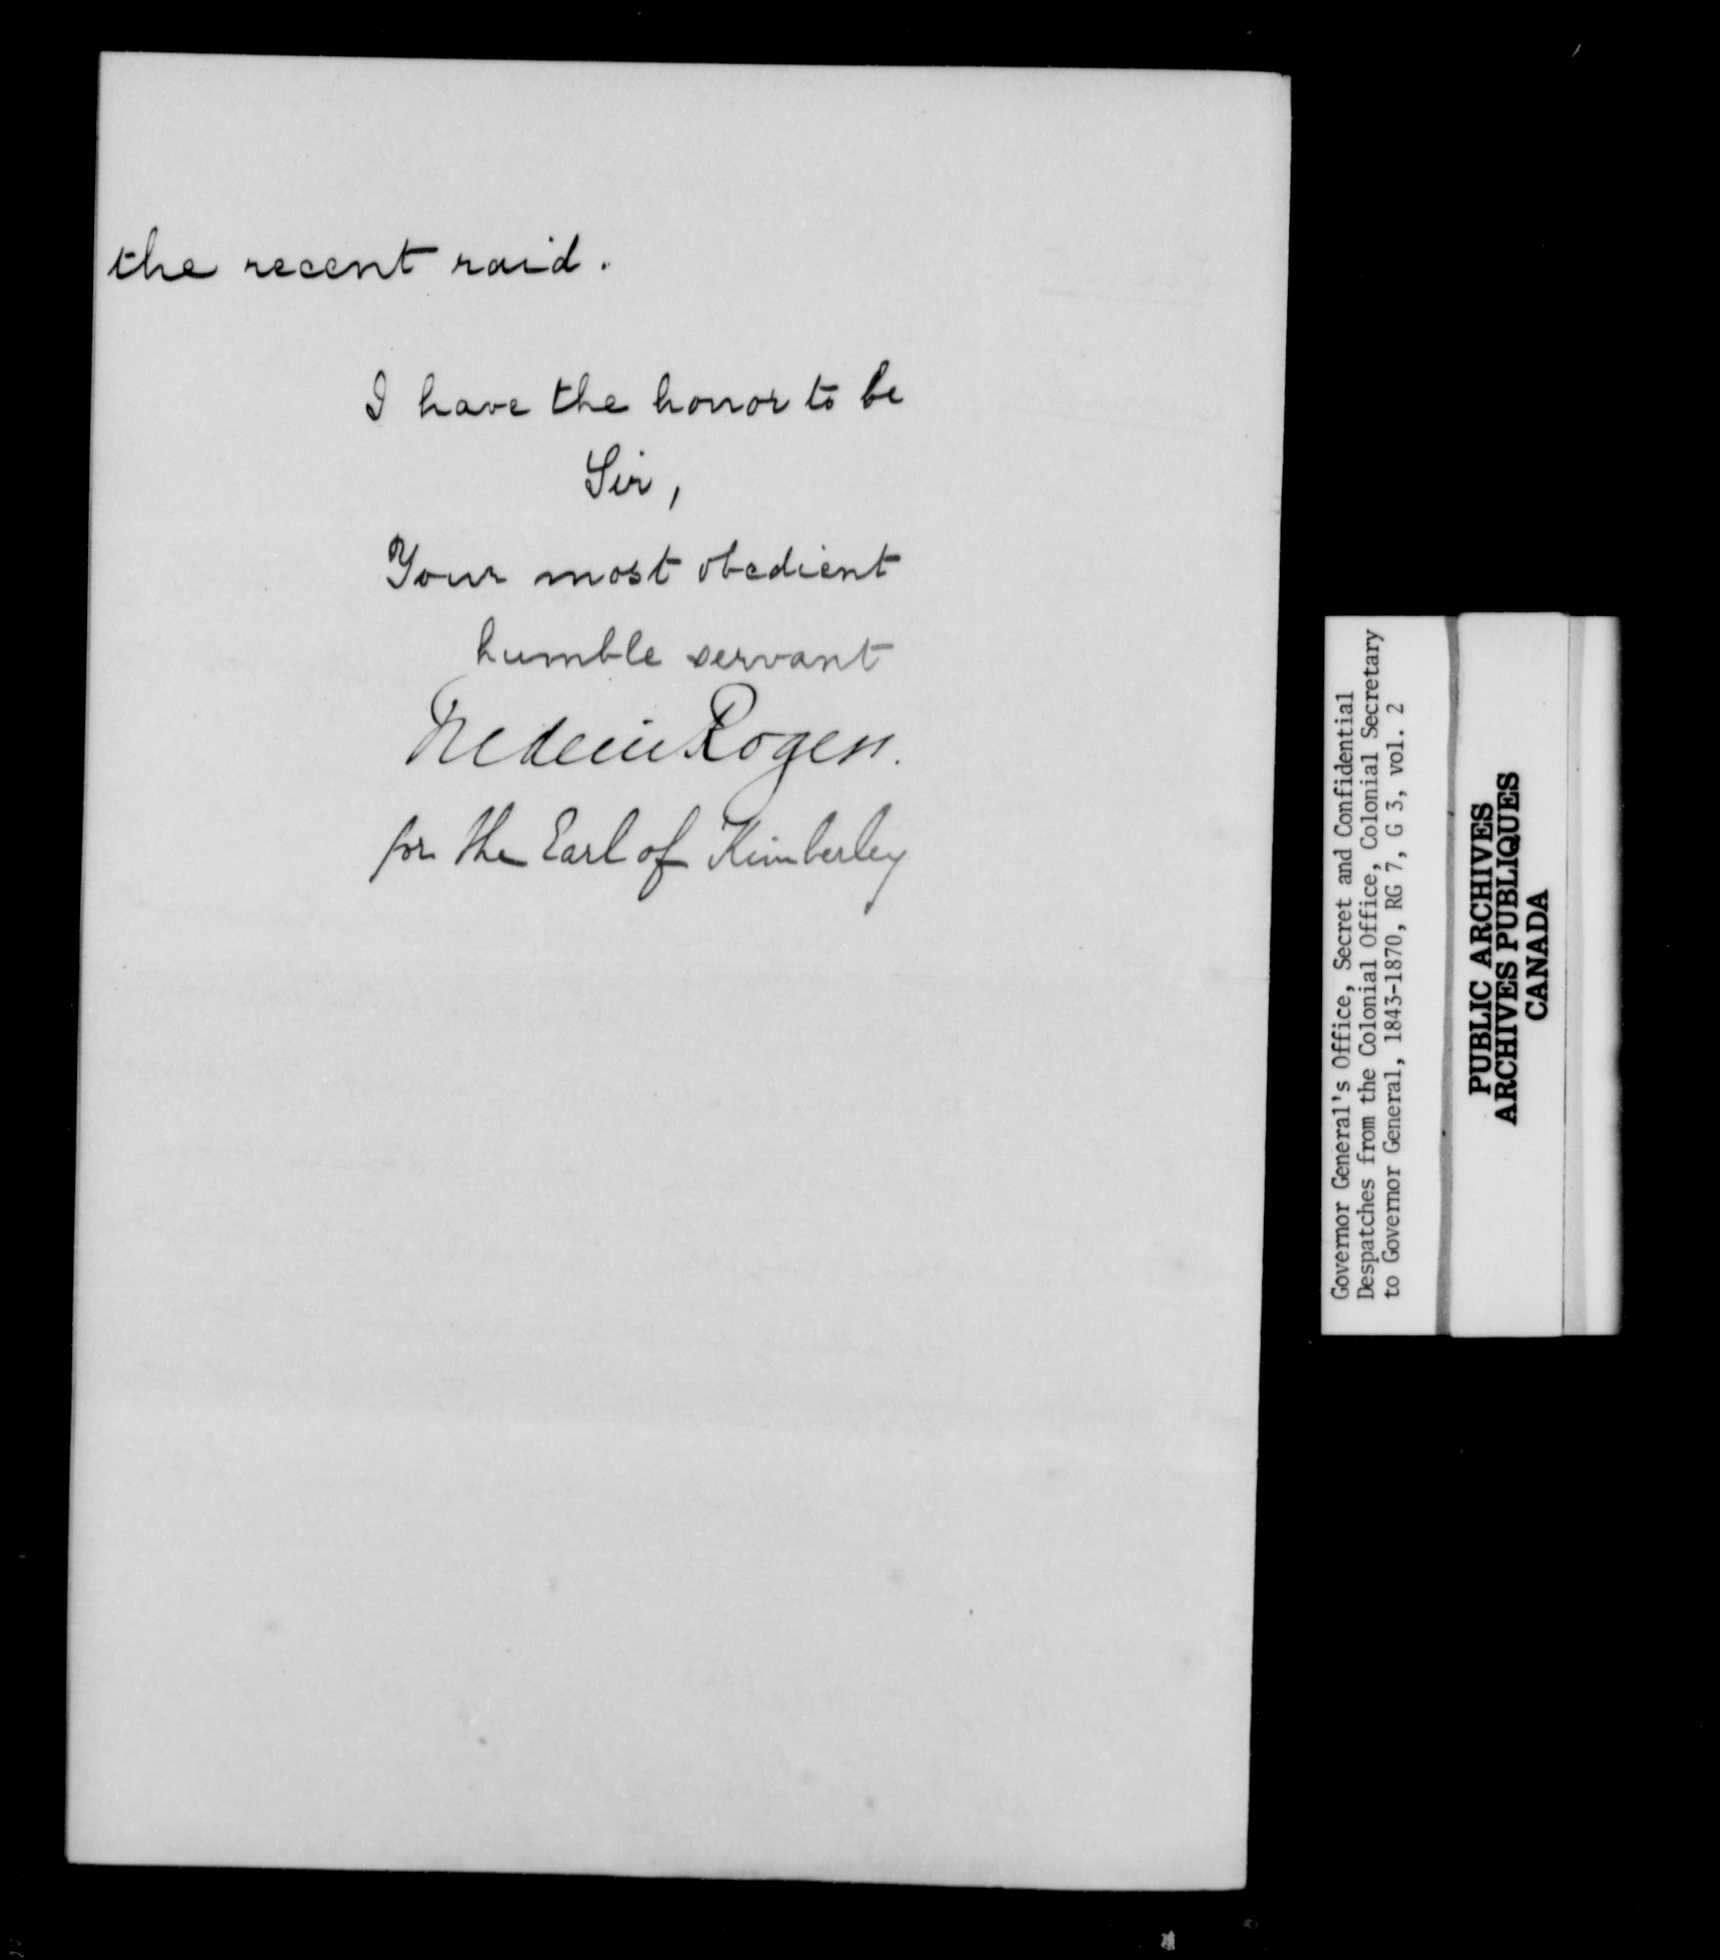 the recent raid.
I have the honor to be
Sir,
Your most obedient
humble servant
Frederic Rogers.
for the Earl of Kimberley
Governor General's Office, Secret and Confidential
Despatches from the Colonial Office, Colonial Secretary
to Governor General, 1843-1870, RG 7, G 3, vol. 2
PUBLIC ARCHIVES
ARCHIVES PUBLIQUES
CANADA